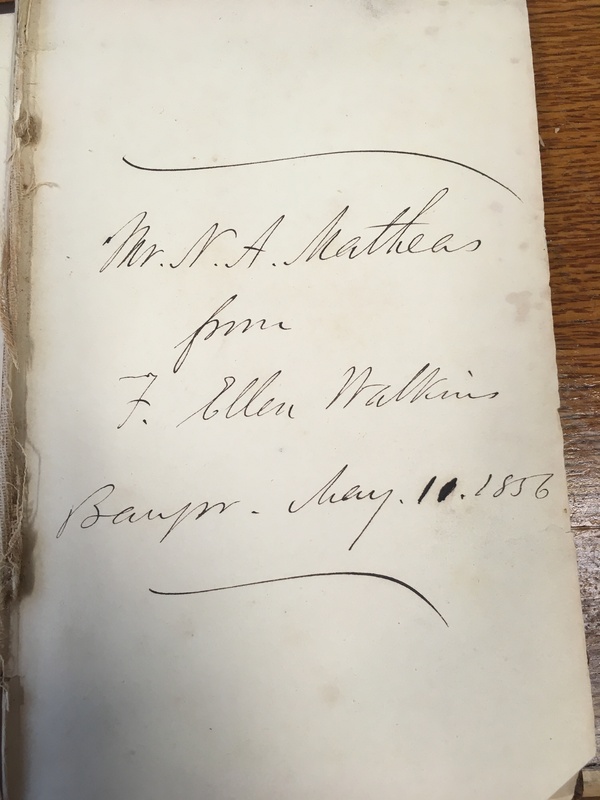 Mr. N. A. Matheas
from
F. Ellen Watkins
Bangor - May. 11. 1856